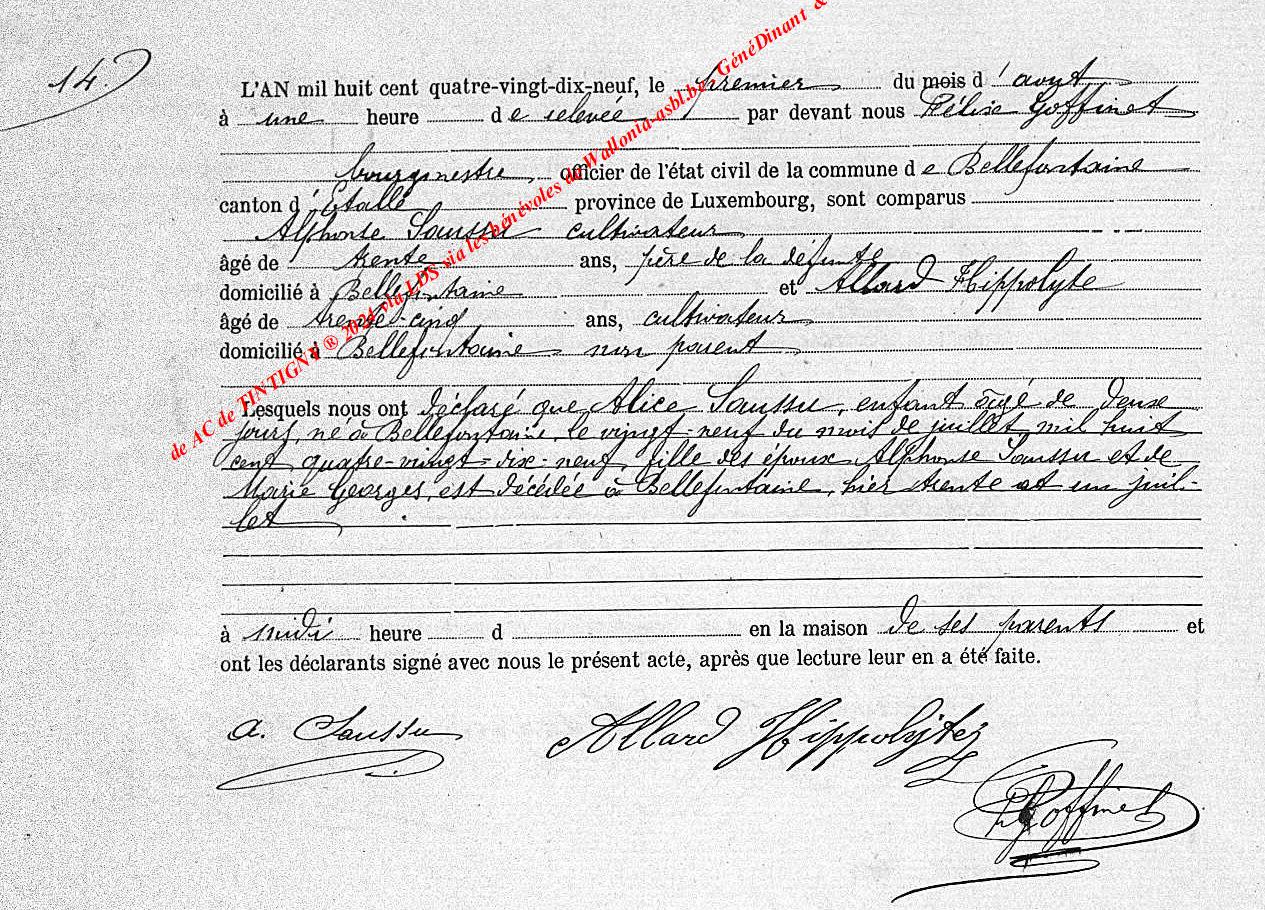 14.
L'AN mil huit cent quatre-vingt-dix-neuf, le premier du mois d'aout
à une heure de relevée par devant nous Félix Goffinet
bourgmestre, officier de l'état civil de la commune de Bellefontaine
canton d'Etalle province de Luxembourg, sont comparus
Alphonse Saussu cultivateur
âgé de trente ans, père de la défunte
domicilié à Bellefontaine et Allard Hippolyte
âgé de trente-cinq ans, cultivateur
domicilié à Bellefontaine non parent
Lesquels nous ont déclaré que Alice Saussu, enfant âgé de deux
jours, né à Bellefontaine, le vingt-neuf du mois de juillet mil huit
cent quatre-vingt-dix-neuf, fille des époux Alphonse Saussu et de
Marie Georges, est décédée à Bellefontaine, hier trente et un juil-
let
à midi heure d en la maison de ses parents et
ont les déclarants signé avec nous le présent acte, après que lecture leur en a été faite.
a. Saussu Allard Hippolyte
Goffinet
de AC de TINTIGNY ® 2024 via LDS via les bénévoles de Wallonia-asbl.be - GénéDinant &